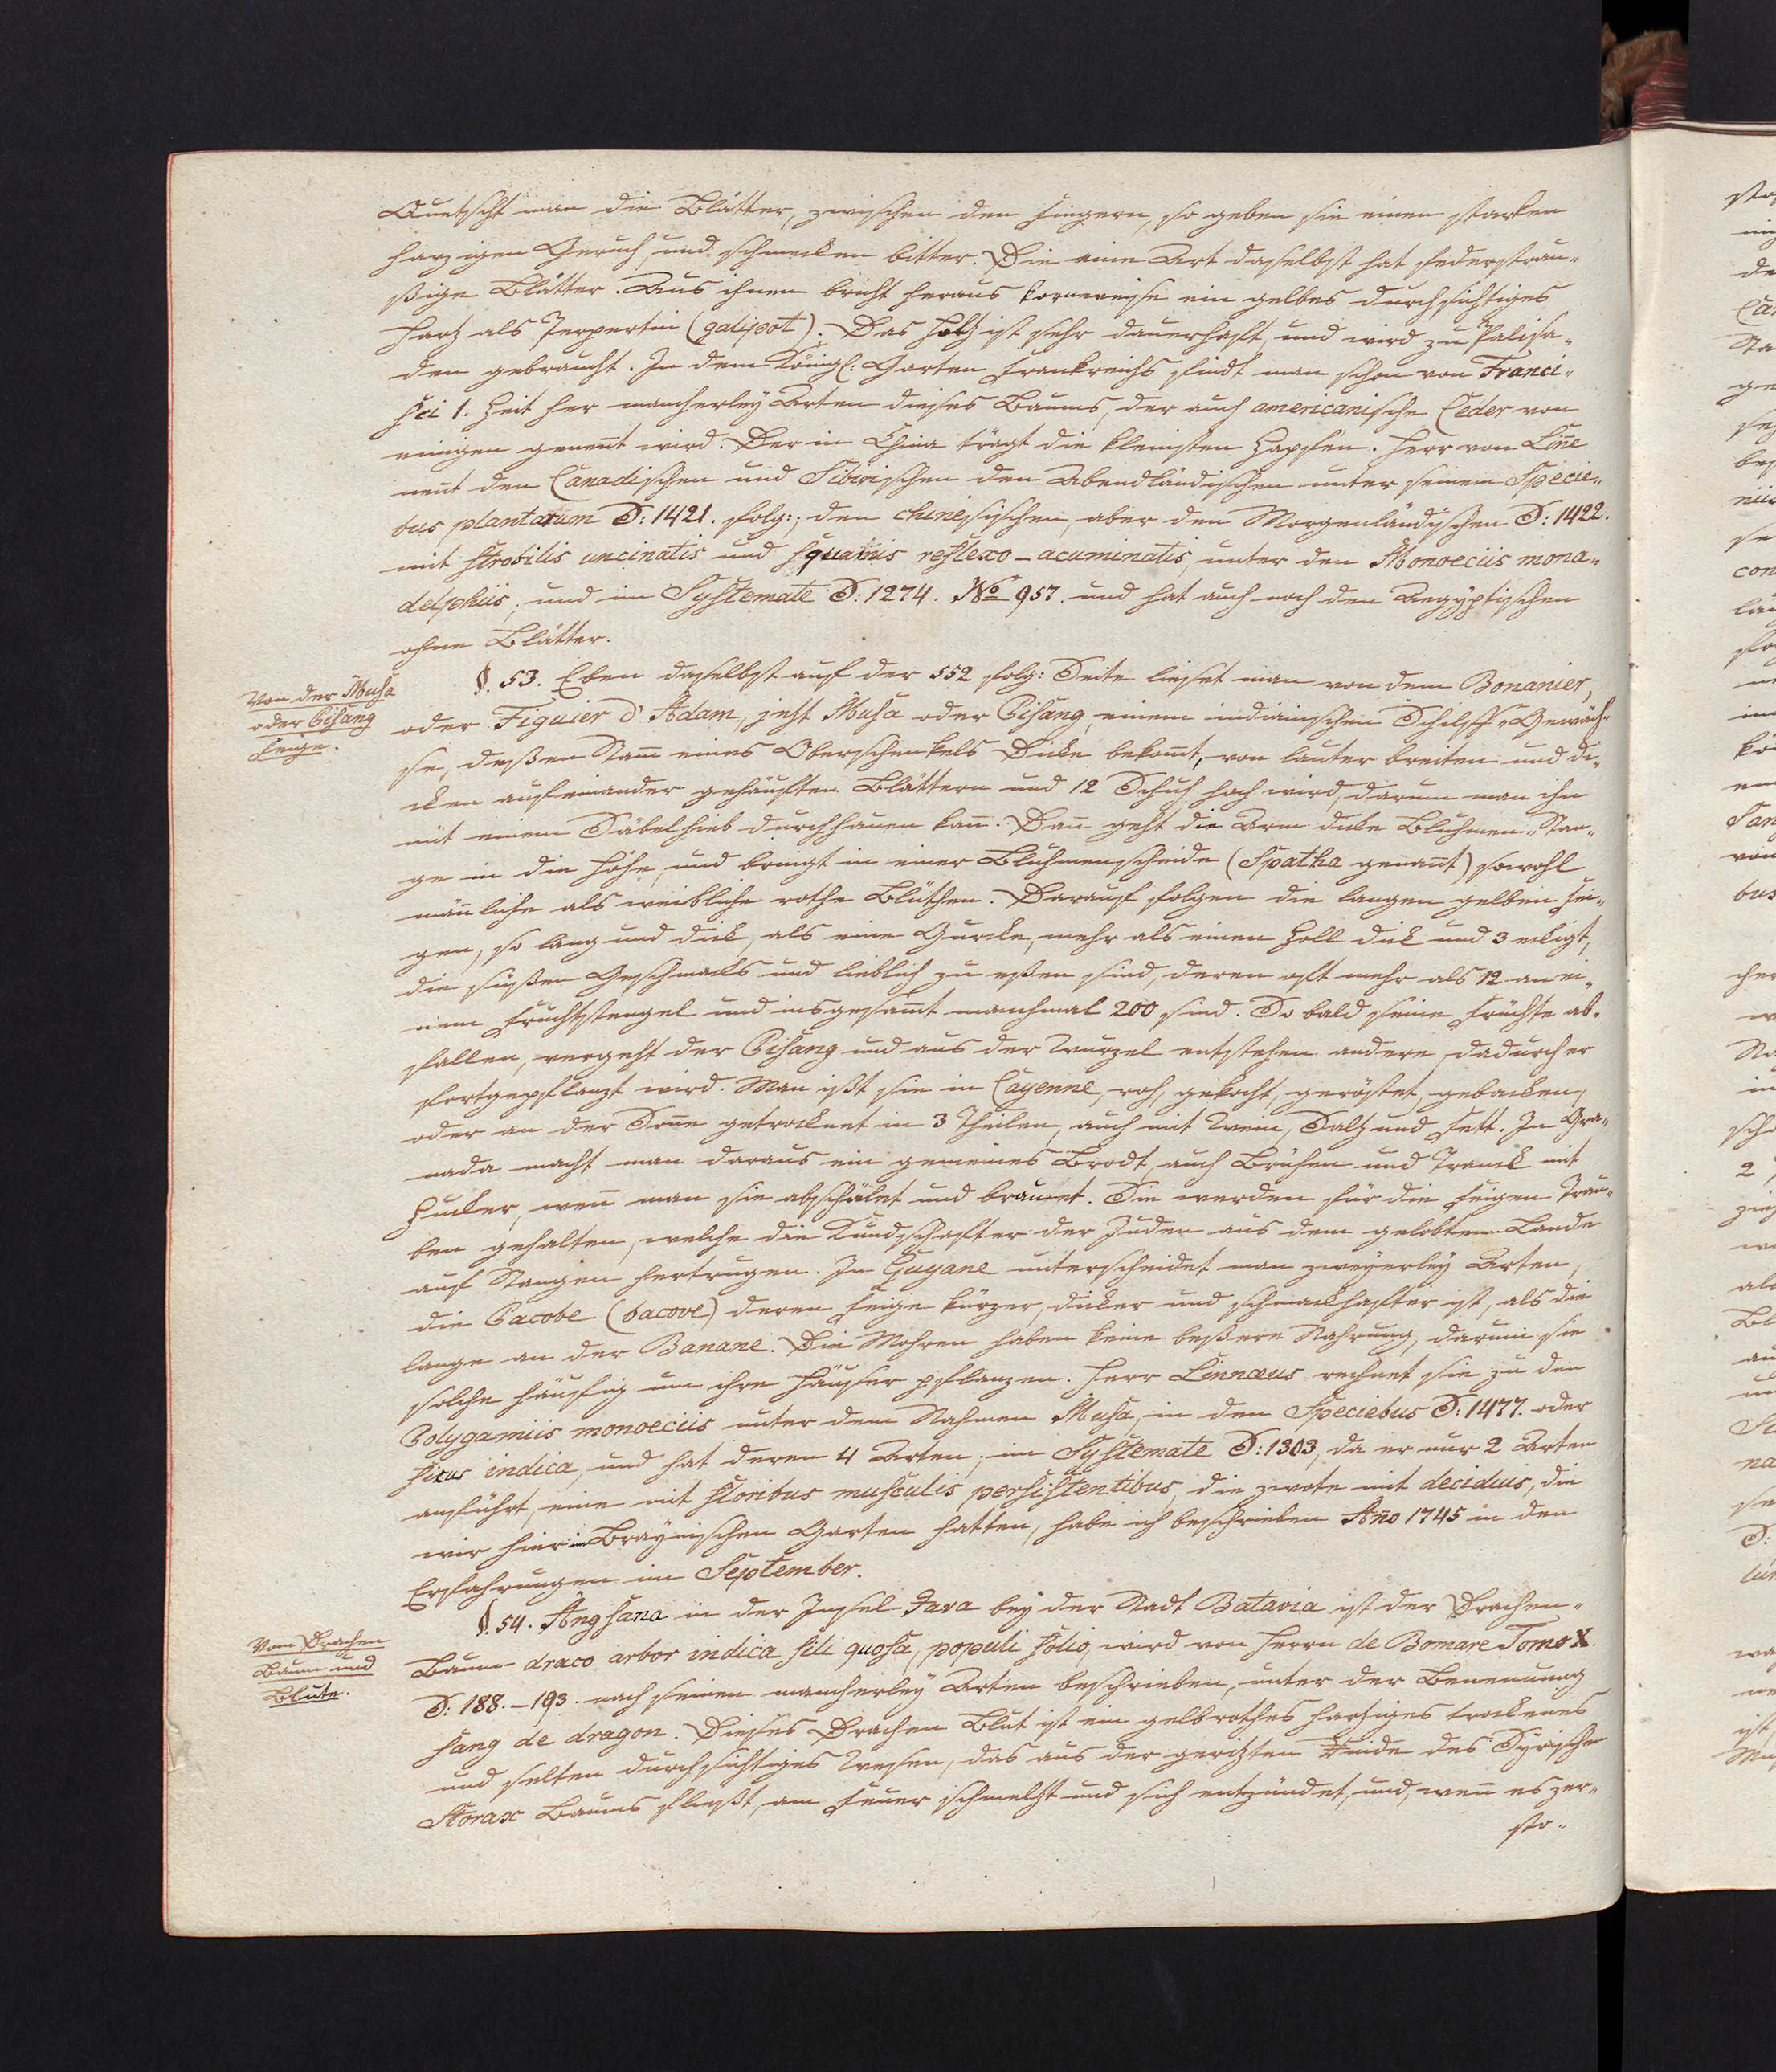 Quetscht man die Blätter, zwischen den Fingern, so geben sie einen starken
harzigen Geruch und schmecken bitter. Die eine Art daselbst hat federsträu-
ßige Blätter. Aus ihnen bricht heraus kornweise ein gelbes durchsichtiges
Hartz als Terpertin (galipot). Das Holtz ist sehr dauerhaft, und wird zu Palisa-
den gebraucht. In dem Königl: Garten Frankreichs findt man schon von Franci-
sci 1. Zeit her mancherley Arten dieses Baums, der auch americanische Ceder von
einigen genent wird. Der in China trägt die kleinsten Zapfen. Herr von Line
nent den Canadischen und Sibirischen den Abendländischen unter seinem Specie-
bus plantarum S: 1421. folg:; den chinesischen, aber den Morgenländischen S: 1422.
mit strobilis uncinatis und squamis reflexo-acuminatis, unter den Monoeciis mona-
delphiis; und im Systemate S: 1274. No 957. und hat auch noch den Aegyptischen
ohne Blätter.
Von der Musa
oder Pisang
Feige.
§. 53. Eben daselbst auf der 552 folg: Seite lieset man von dem Bonanier,
oder Figuier d'Adam, jetzt Musa oder Pisang, einem indiainischen Schilff-Gewäch-
se, deßen Stam eines Oberschenkels Dicke bekomt, von lauter breiten und di-
cken aufeinander gehäuften Blättern und 12 Schuh hoch wird, darum man ihn
mit einem Säbelhieb durchhauen kan. Dan geht die Arm dicke Bluhmen-Stan-
ge in die Höhe, und bringt in einer Bluhmenscheide (Spatha genant) sowohl
mänliche als weibliche rothe Blüthen. Darauf folgen die langen gelben Fei-
gen, so lang und dick, als eine Gurcke, mehr als einen Zoll dick und 3 eckigt,
die süßen Geschmacks und lieblich zu eßen sind, deren oft mehr als 12 an ei-
nem Fruchtstengel und insgesamt manchmal 200 sind. So bald seine Früchte ab-
fallen, vergeht der Pisang und aus der Wurzel entstehen andere, dadurch er
fortgepflanzt wird. Man ißt sie in Cayenne, roh, gekocht, geröstet, gebacken,
oder an der Sone getrocknet in 3 Theilen, auch mit Wein, Saltz und Fett. In Gra-
nada macht man daraus ein gemeines Brodt, auch Brühen und Tranck mit
Zucker, wen man sie abschälet und brauet. Sie werden für die Feigen Trau-
ben gehalten, welche die Kundschafter der Juden aus dem gelobten Lande
auf Stangen hertrugen. In Guyane unterscheidet man zweyerley Arten,
die Pacobe (bacove) deren Feige kürzer, dicker und schmackhafter ist, als die
lange an der Banane. Die Mohren haben keine beßere Nahrung, darum sie
solche häufig um ihre Häuser pflanzen. Herr Linnaeus rechnet sie zu den
Polygamiis monoeciis unter dem Nahmen Musa, in den Speciebus S: 1477. oder
ficus indica, und hat deren 4 Arten; im Systemate S: 1303, da er nur 2 Arten
anführt, eine mit floribus musculis persistentibus, die zwote mit deciduis, die
wir hier im Breynischen Garten hatten, habe ich beschrieben Ano 1745 in den
Erfahrungen im September.
Vom Drachen
Baum und
Blute.
§. 54. Angsana in der Insel Java bey der Stadt Batavia ist der Drachen-
Baum draco arbor indica sili quosa, populi folio, wird von Herrn de Bomare Tomo X.
S: 188.-193. nach seinen mancherley Arten beschrieben, unter der Benenung
sang de dragon. Dieses Drachen Blut ist ein gelbrothes hartziges trockenes
und selten durchsichtiges Wesen, das aus der geritzten Rinde des Syrischen
Storax Baums fließt, am Feuer schmeltzt und sich entzündet, und, wen es zer-
sto-